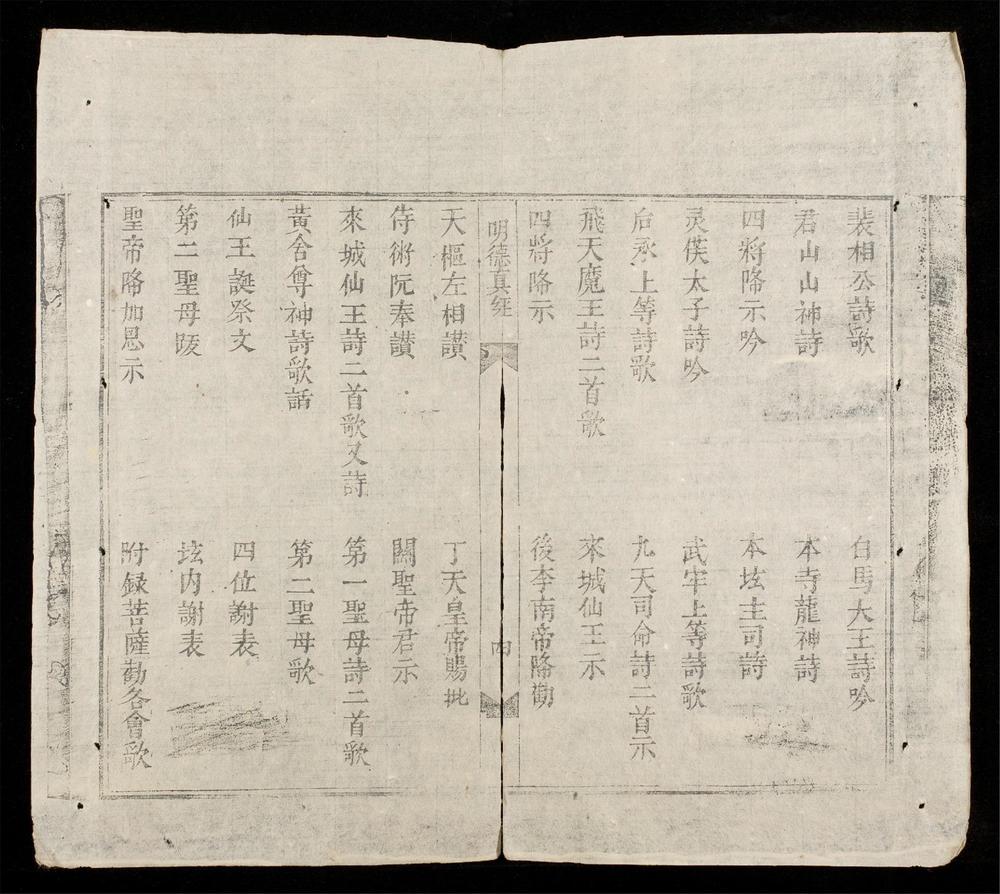 裴相公詩歌　白馬大王詩吟
君山山神詩　本寺龍神詩
四將降示吟　本坛主司詩
灵侯太子詩吟　武牢上等詩歌
后承上等詩歌　九天司命詩二首示
飛天魔王詩二首歌　來城仙王示
四將降示　後李南帝降勸
明德真經　四
天樞左相讃　丁天皇帝賜批
侍術阮奉讃　關聖帝君示
來城仙王詩二首歌又詩　第一聖母詩二首歌
黃舍尊神詩歌話　第二聖母歌
仙王誕祭文　四位謝表
第二聖母跋　坛内謝表
聖帝降加恩示　附録菩薩勸各會歌